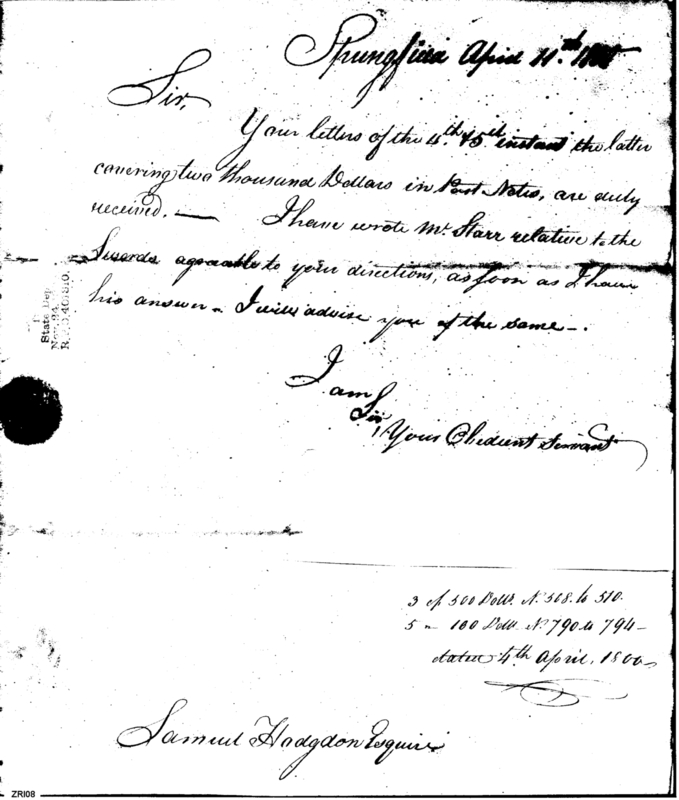 Springfield April 11.th 1800
Sir,
Your letters of the 4.th & 5.th instant the latter
covering two thousand Dollars in Post Notes, are duly
received. — I have wrote Mr Starr relative to the
Swords agreeable to your directions, as soon as I have
his answer - I will advise you of the same -.
I am
Sir
Your Obedient Servant
3 of 500 Dolls. No. 508. to 510.
5 - 100 Dolls No. 790 to 794 -
dated 4th April, 1800
Samuel Hodgdon Esquire
State Dep
Nov. 24,
R.
ZRI08